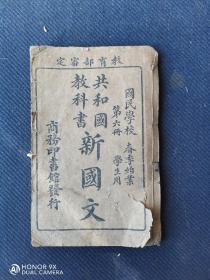 教育部審定
國民學校 春季始業
第六冊 學生用
共和國
教科書
新國文
商務印書館發行
REDMI NOTE 8
AI QUAD CAMERA